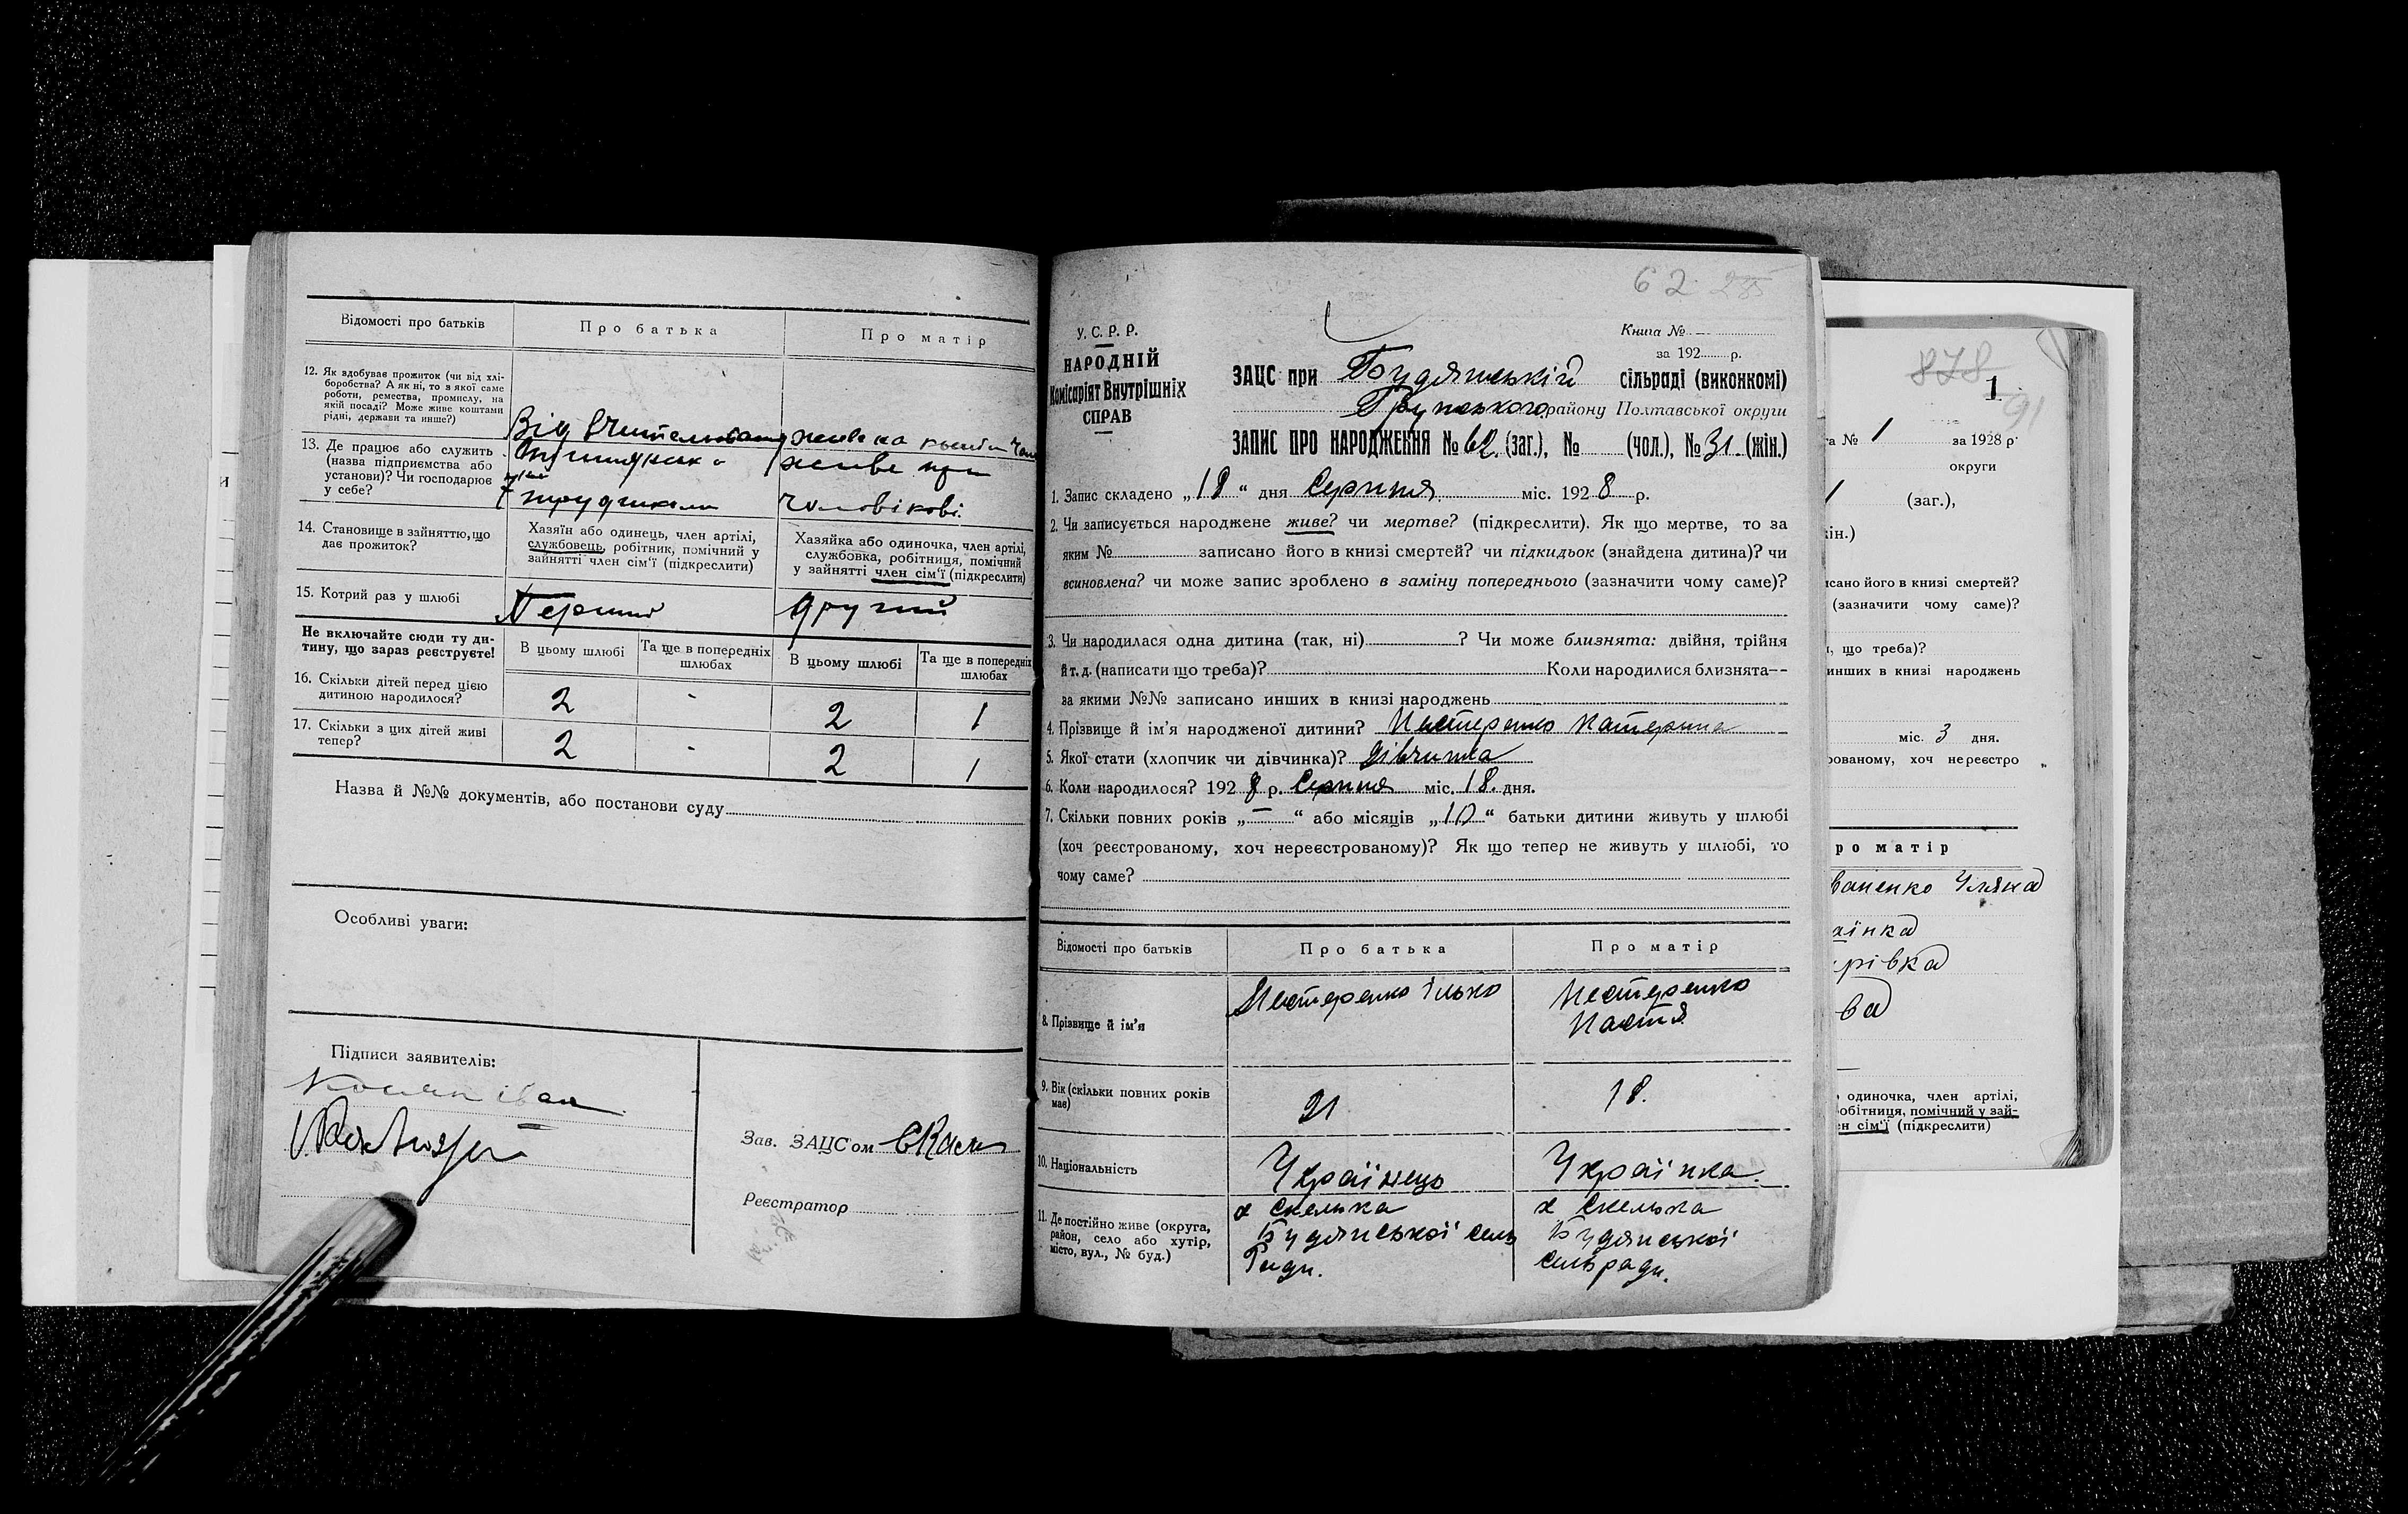 Відомості про батьків
Про батька
Про матір
12. Як здобуває прожиток (чи від хлі-
боробства? А як ні, то з якої саме
роботи, ремества, промислу, на
якій посаді? Може живе коштами
рідні, держави та инше?)
Від
живе на
13. Де працює або служить
(назва підприємства або
установи)? Чи господарює
у себе?
живе при
чоловікові.
14. Становище в зайняттю, що
дає прожиток?
Хазяїн або одинець, член артілі,
службовець, робітник, помічний у
зайнятті член сім'ї (підкреслити)
Хазяйка або одиночка, член артілі,
службовка, робітниця, помічний
у зайнятті член сім'ї (підкреслити)
15. Котрий раз у шлюбі
Перший
другий
Не включайте сюди ту ди-
тину, що зараз реєструєте!
В цьому шлюбі
Та ще в попередніх
шлюбах
В цьому шлюбі
Та ще в попередніх
шлюбах
16. Скільки дітей перед цією
дитиною народилося?
2 - 2 1
17. Скільки з цих дітей живі
тепер?
2 2 1
Назва й №№ документів, або постанови суду
Особливі уваги:
Підписи заявителів:
Іван
Зав. ЗАЦС'ом
Реєстратор
62
У. С. Р. Р.
НАРОДНІЙ
Комісаріят Внутрішніх
СПРАВ
Книга № —
за 192 р.
ЗАЦС при Будянській сільраді (виконкомі)
Грунського району Полтавської округи
ЗАПИС ПРО НАРОДЖЕННЯ № 62 (заг.), № (чол.), № 31 (жін.)
1. Запис складено „18“ дня Серпня міс. 1928 р.
2. Чи записується народжене живе? чи мертве? (підкреслити). Як що мертве, то за
яким № записано його в книзі смертей? чи підкидьок (знайдена дитина)? чи
всиновлена? чи може запис зроблено в заміну попереднього (зазначити чому саме)?
3. Чи народилася одна дитина (так, ні) ? Чи може близнята: двійня, трійня
й т. д. (написати що треба)? Коли народилися близнята—
за якими №№ записано инших в книзі народжень
4. Прізвище й ім'я народженої дитини? Нестеренко Катерина
5. Якої стати (хлопчик чи дівчинка)? дівчинка
6. Коли народилося? 1928 р. Серпня міс. 18. дня.
7. Скільки повних років „—“ або місяців „10“ батьки дитини живуть у шлюбі
(хоч реєстрованому, хоч нереєстрованому)? Як що тепер не живуть у шлюбі, то
чому саме?
Відомості про батьків
Про батька
Про матір
8. Прізвище й ім'я
Нестеренко Ілько
Нестеренко
Настя
9. Вік (скільки повних років
має)
21
18.
10. Національність
Українець
Українка.
11. Де постійно живе (округа,
район, село або хутір,
місто, вул., № буд.)
х Скелька
Будянської сель
Ради.
х Скелька
Будянської
сельради.
878
1
91
№ 1 за 1928 р.
округи
(заг.),
ін.)
исано його в книзі смертей?
(зазначити чому саме)?
що треба)?
инших в книзі народжень
міс. 3 дня.
рованому, хоч нереєстро
ро матір
ваненко Уляна
аїнка
рівка
ва
одиночка, член артілі,
обітниця, помічний у зай-
ен сім'ї (підкреслити)